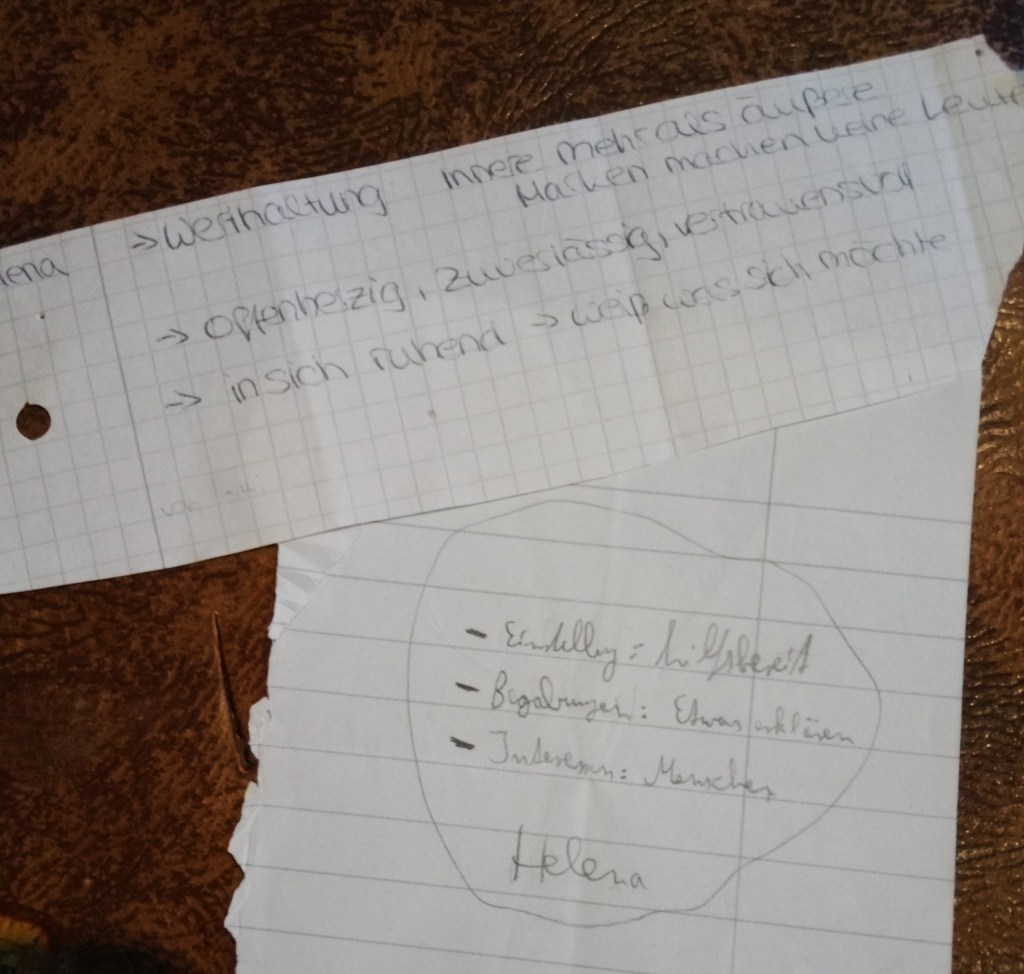 lena
→ Werthaltung innere mehr als äußere
Macken machen keine Leute
→ offenherzig, zuverlässig, vertrauensvoll
→ in sich ruhend → weiß was sich möchte
- Einstellung = hilfsbereit
- Begabungen: Etwas erklären
- Interessen: Menschen
Helena